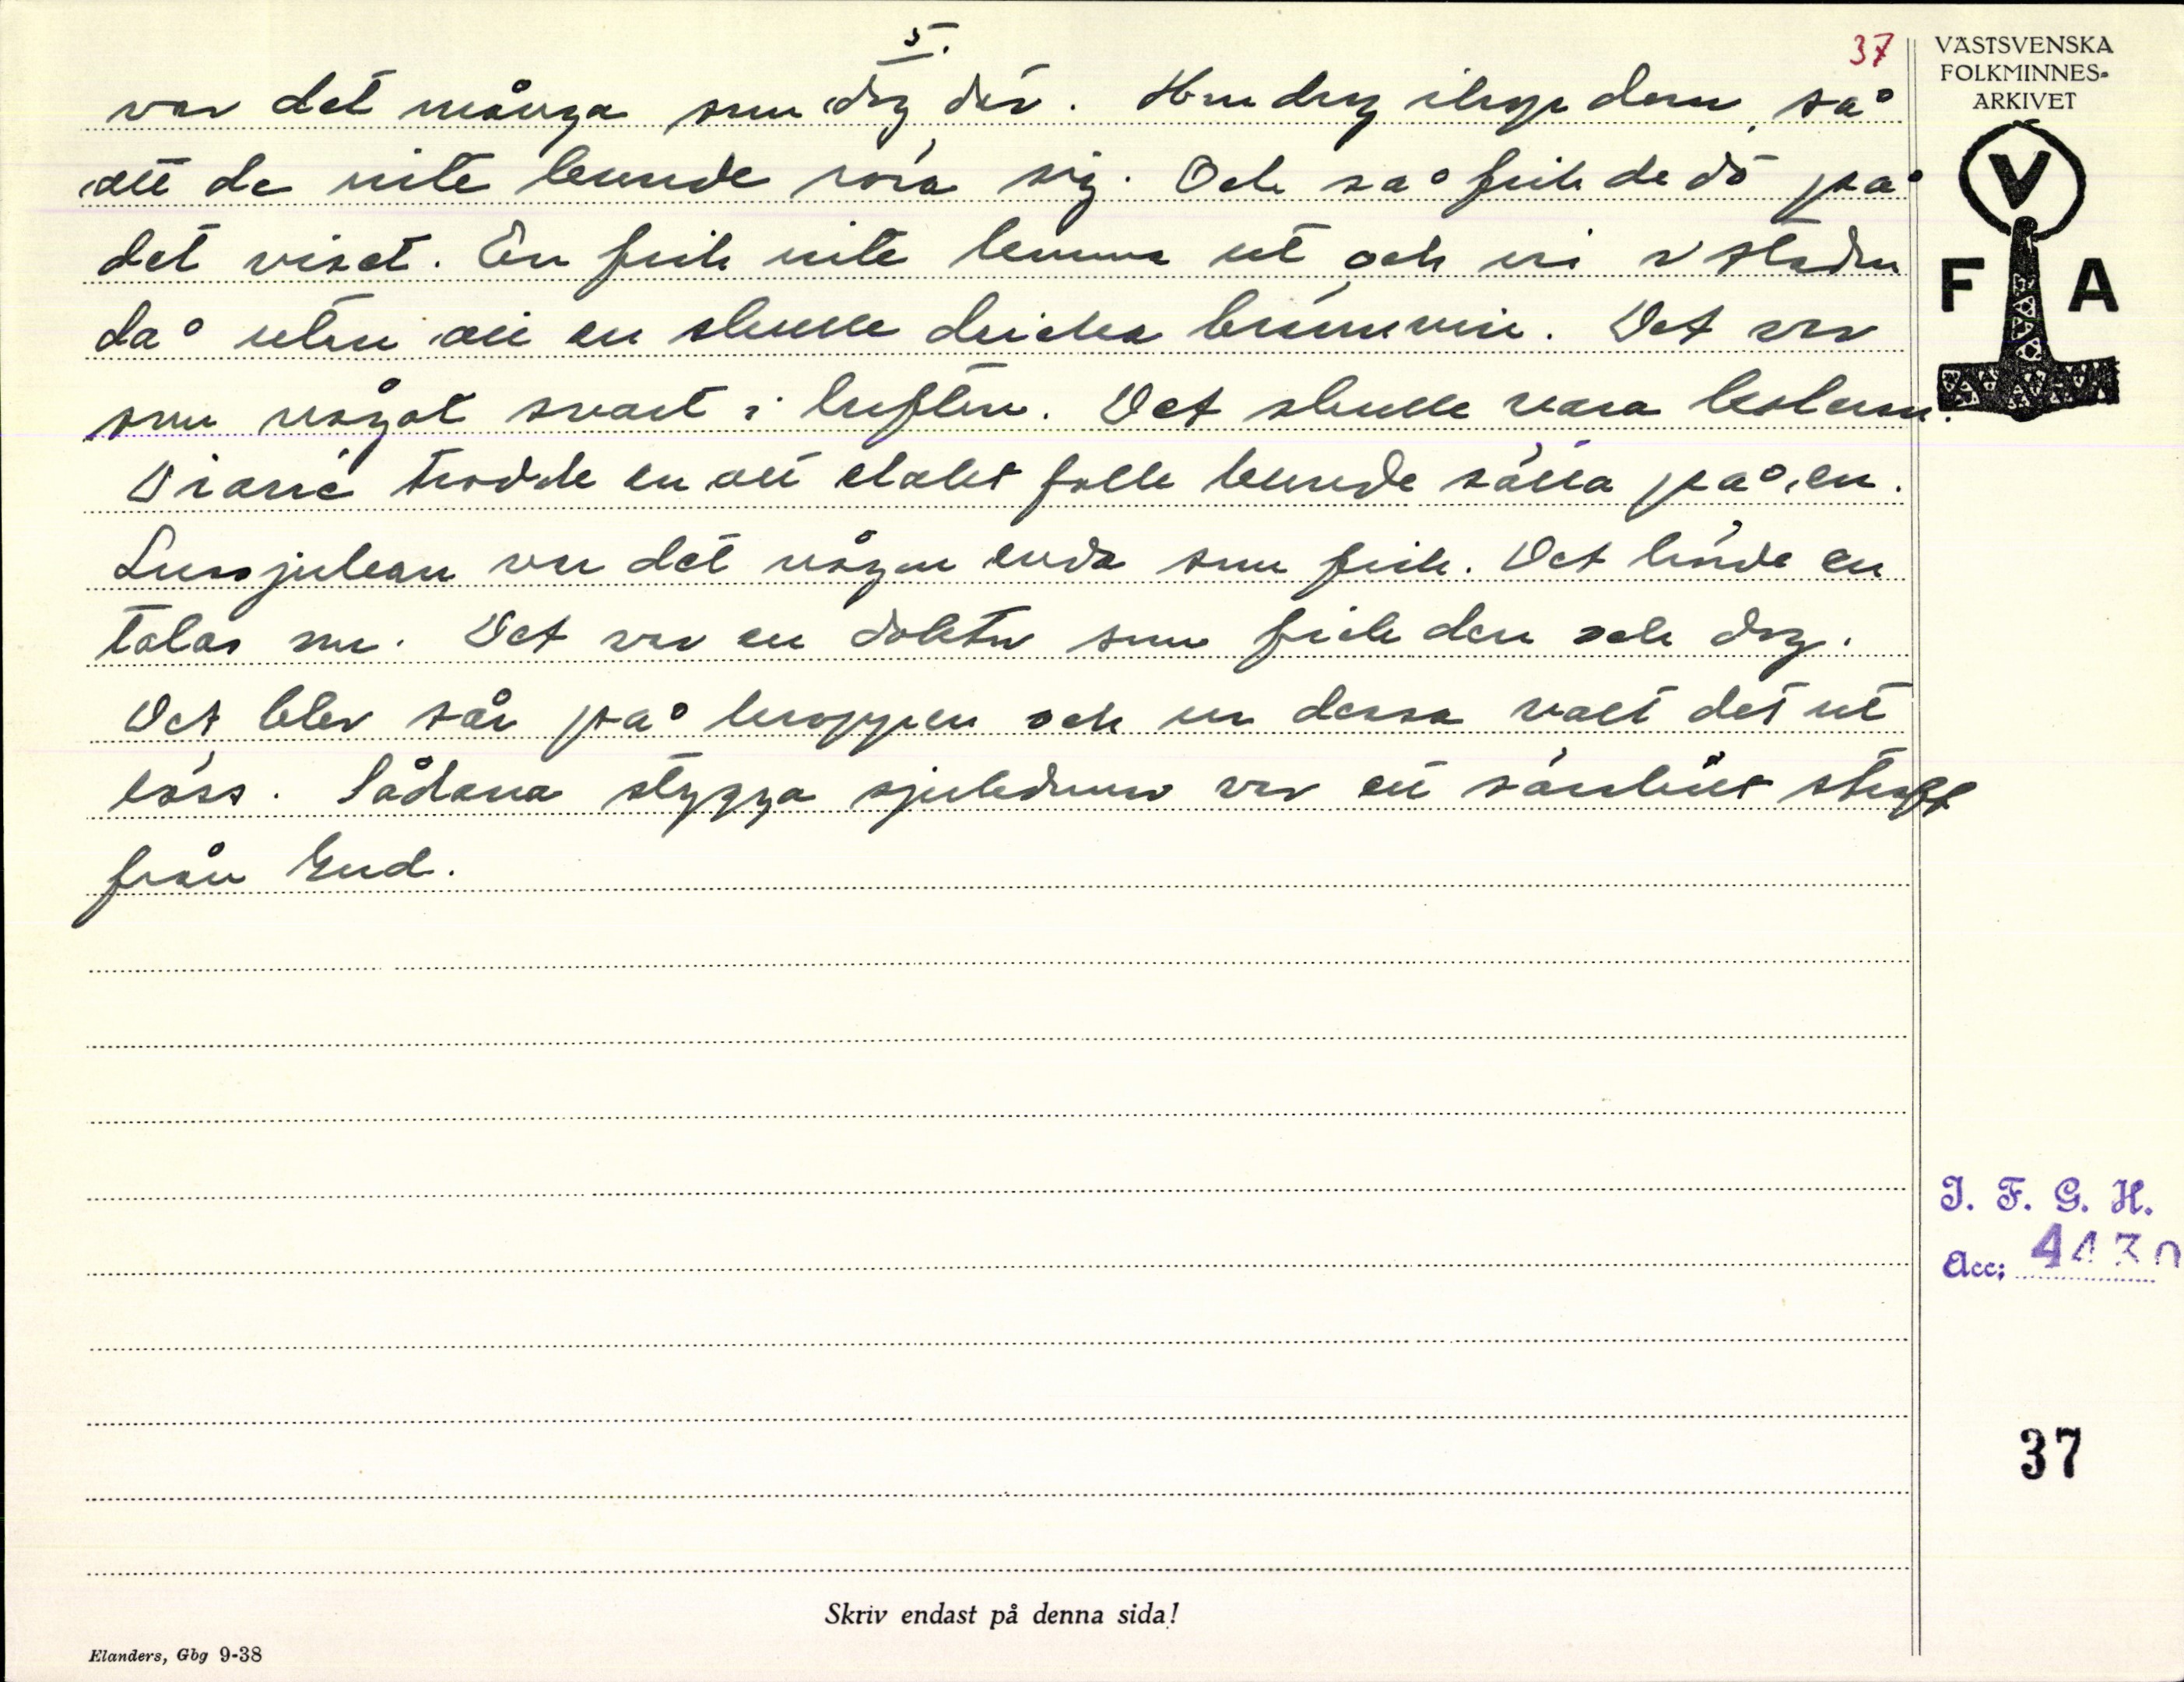 5.
37
var det många som dog där. Hon drog ihop dem, så
att de inte kunde röra sig. Och så fick de dö på
det viset. En fick inte komma ut och in i staden
då utan att en skulle dricka brännvin. Det var
som något svart i luften. Det skulle vara koleran.
Diarré trodde en att elakt folk kunde sätta på en.
Lussjukan var det någon enda som fick. Det hörde en
talas om. Det var en doktor som fick den och dog.
Det blev sår på kroppen och ur dessa valt det ut
löss. Sådana stygga sjukdomar var ett särskilt straff
från Gud.
VÄSTSVENSKA
FOLKMINNES-
ARKIVET
V
F A
I. F. G. H.
Acc: 4430
37
Skriv endast på denna sida!
Elanders, Gbg 9-38